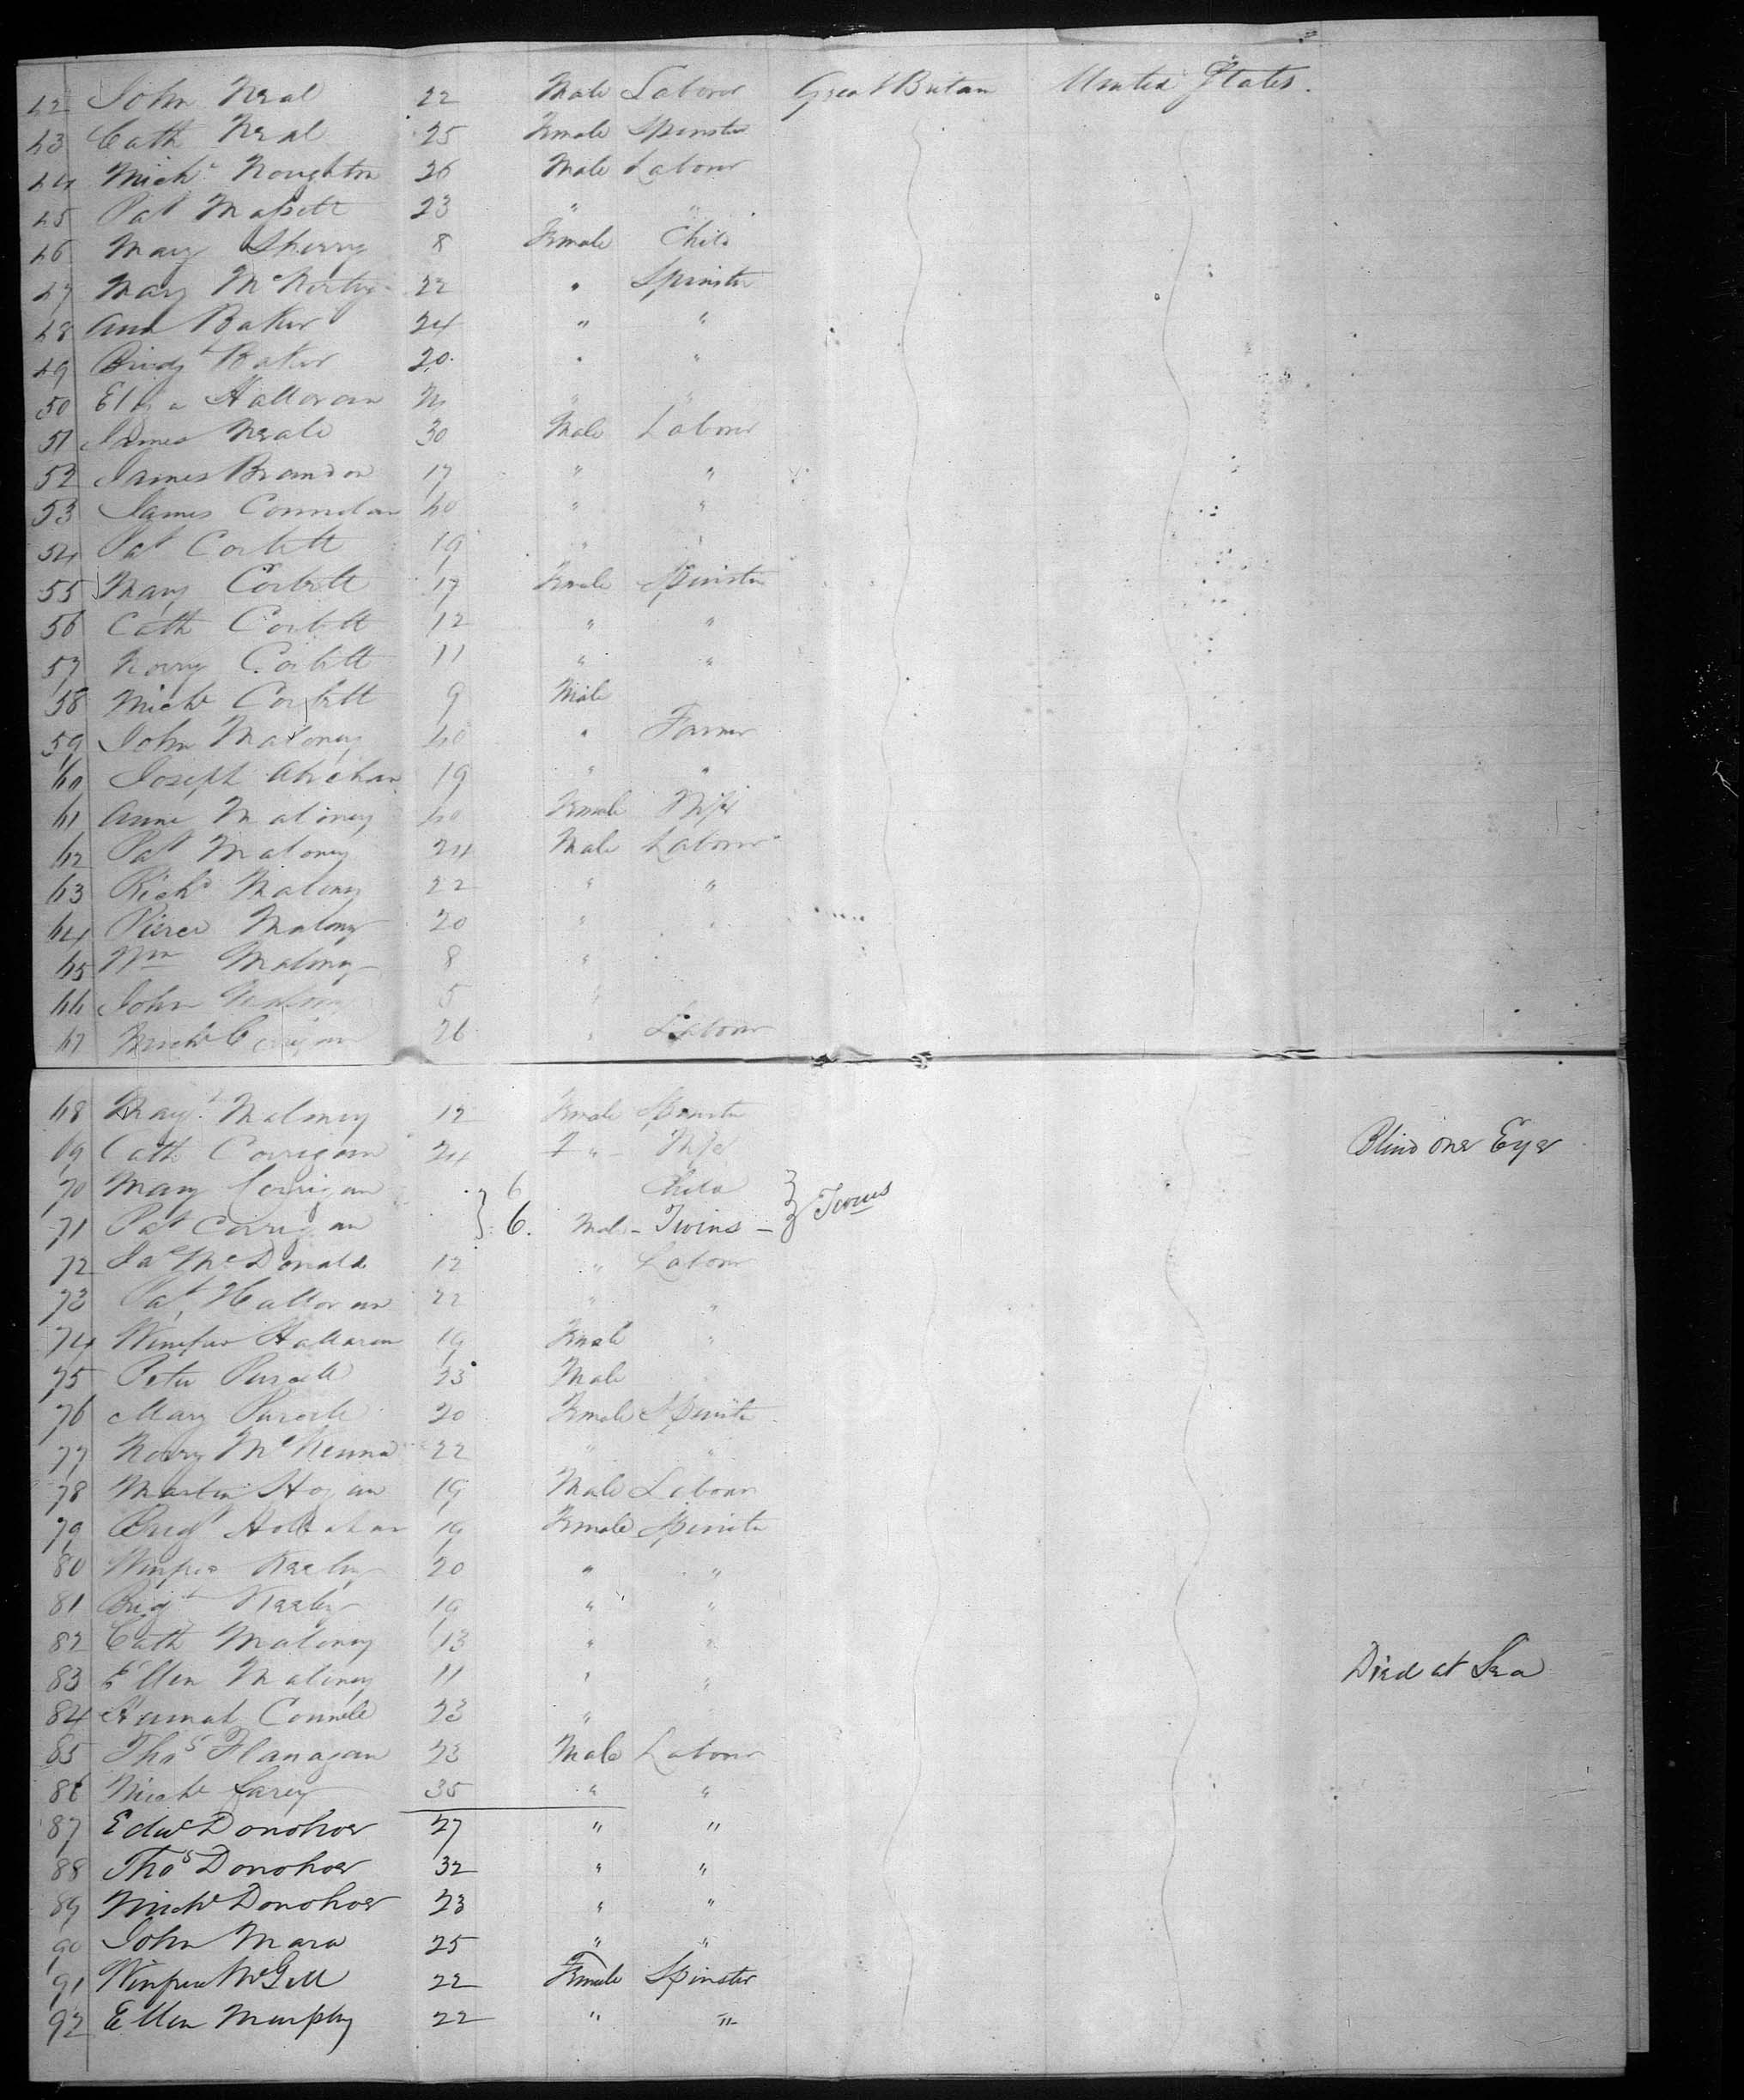 42 John Neal 22 Male Labour Great Britain United States.
43 Cath Neal 25 Female Spinster
44 Michl Noughton 26 Male Labour
45 Pat 23 " "
46 Mary Sherry 8 Female Child
47 Mary 22 " Spinster
48 Ann Baker 24 " "
49 Bridgt Baker 20 " "
50 Eliza Halloran " "
51 James Neale 30 Male Labour
52 James Brandon 17 " "
53 James 40 " "
54 Pat Corbett 19 " "
55 Mary Corbett 17 Female Spinster
56 Cath Corbett 12 " "
57 Norry Corbett 11 " "
58 Michl Corbett 9 Male
59 John Maloney 40 " Farmer
60 Joseph 19 " "
61 Anne Maloney 40 Female Wife
62 Pat Maloney 24 Male Labour
63 Richd Maloney 22 " "
64 Pierce Maloney 20 " "
65 Wm Maloney 8 "
66 John Maloney 5 "
67 Michl Corrigan 26 " Labour
68 Magt Maloney 12 Female Spinster
69 Cath Corrigan 24 F " Wife Blind one Eye
70 Mary Corrigan 6 Child
71 Pat Corrigan 6. Male - Twins - Twins
72 Jas McDonald 12 " Labour
73 Pat Halloran 22 " "
74 Winifred Halloran 19 Female "
75 Peter Purcell 23 Male
76 Mary Purcell 20 Female Spinster
77 Norry McKenna 22 " "
78 Martin Hogan 19 Male Labour
79 Brigt 19 Female Spinster
80 Winfred Keeley 20 " "
81 Brigt Keeley 19 " "
82 Cath Maloney 13 " "
83 Ellen Maloney 11 " " Died at Sea
84 Connell 23 "
85 Thos Flanagan 23 Male Labour
86 Michl Carey 35 " "
87 Edwd Donohoe 27 " "
88 Thos Donohoe 32 " "
89 Michl Donohoe 23 " "
90 John Mara 25 " "
91 Winfred McGill 22 Female Spinster
92 Ellen Murphy 22 " "